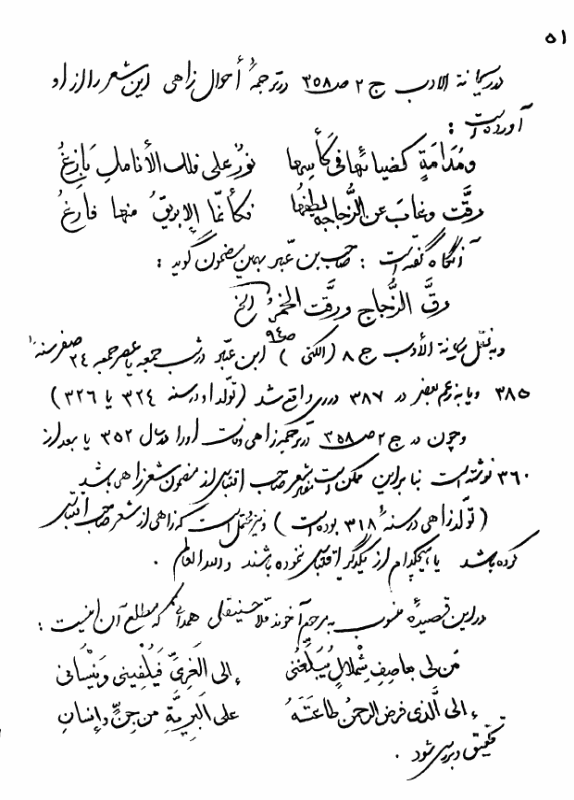 ٥١
در ریحانة الادب ج ٢ ص ٣٥٨ در ترجمهٔ أحوال زاهی این شعر را از او
آورده است :
ومُدَامَةٍ كضيائها فی كَأسِها نورٌ علی فلك الأنامل بَازِغُ
رقَّت وغابَ عن الزُّجاجه لطفها فكأنّما الإبريقُ منها فارغُ
آنگاه گفته است : صاحب بن عبّاد بهمین مضمون گوید :
رقَّ الزُّجاج ورقَّت الخمرُ الخ
وبه نقل ریحانة الأدب ج ٨ (الكنی) ص ٩٤ ابن عبّاد در شب جمعه یا عصر جمعه ٢٤ صفر سنهٔ
٣٨٥ ویا به زعم بعضی در ٣٨٧ در ری واقع شد (تولّد او در سنه ٣٢٤ یا ٣٢٦)
وچون در ج ٢ ص ٣٥٨ در ترجمهٔ زاهی وفات او را در سال ٣٥٢ یا بعد از
٣٦٠ نوشته است بنا براین ممکن است شعر صاحب اقتباس از مضمون شعر زاهی باشد
(تولّد زاهی در سنهٔ ٣١٨ بوده است) ونیز محتمل است که زاهی از شعر صاحب اقتباس
کرده باشد یا هیچکدام از یکدیگر اقتباس ننموده باشند والله العالم .
در این قصیدهٔ منسوب به مرحوم آخوند ملّا حسینقلی همدانی که مطلع آن اینست :
مَن لی بعاصِفِ شِملالٍ يُبَلّغُنی إلی الغَریِّ فَيُلفينی ويَنسانی
إلی الَّذی فرض الرحمن طاعَتَهُ علی البَرِيَّةِ من جِنٍّ وإنسانِ
تحقیق و بررسی شود .